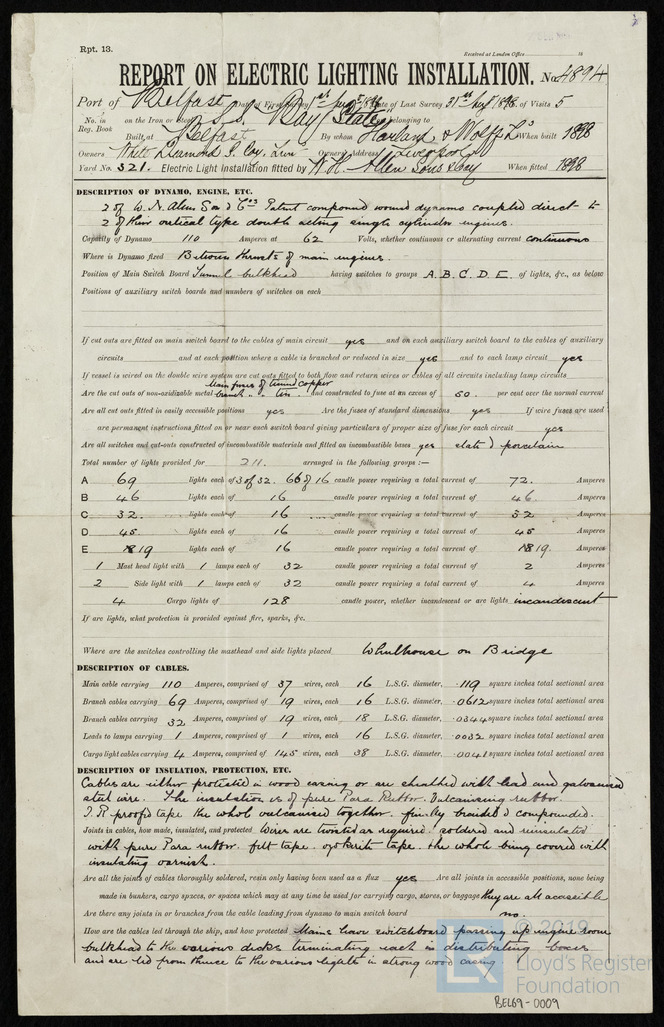 Rpt. 13.
Received at London Office 18
REPORT ON ELECTRIC LIGHTING INSTALLATION. No. 4894
Port of Belfast Date of First Survey 1st Date of Last Survey 31st 1898 No. of Visits 5
No. in Reg. Book on the Iron or Steel S.S. "Bay State" Port belonging to
Built at Belfast By whom Harland & Wolff Ld When built 1898
Owners White Diamond S. Coy. Owners' Address Liverpool
Yard No. 321. Electric Light Installation fitted by W. H. Allen Sons & Coy When fitted 1898
DESCRIPTION OF DYNAMO, ENGINE, ETC.
2 of W. H. Allen Son & Cos Patent compound wound dynamo coupled direct to
2 of their vertical type double acting single cylinder engines.
Capacity of Dynamo 110 Amperes at 62 Volts, whether continuous or alternating current continuous
Where is Dynamo fixed Between thrusts of main engines.
Position of Main Switch Board Tunnel bulkhead having switches to groups A. B. C. D. E. of lights, &c., as below
Positions of auxiliary switch boards and numbers of switches on each
If cut outs are fitted on main switch board to the cables of main circuit yes and on each auxiliary switch board to the cables of auxiliary
circuits and at each position where a cable is branched or reduced in size yes and to each lamp circuit yes
If vessel is wired on the double wire system are cut outs fitted to both flow and return wires or cables of all circuits including lamp circuits
Main fuses of tinned copper
Are the cut outs of non-oxidizable metal branch " " tin. and constructed to fuse at an excess of 50. per cent over the normal current
Are all cut outs fitted in easily accessible positions yes Are the fuses of standard dimensions yes If wire fuses are used
are permanent instructions fitted on or near each switch board giving particulars of proper size of fuse for each circuit yes
Are all switches and cut-outs constructed of incombustible materials and fitted on incombustible bases yes slate & porcelain
Total number of lights provided for 211. arranged in the following groups :—
A 69 lights each of 3 of 32. 66 of 16 candle power requiring a total current of 72. Amperes
B 46 lights each of 16 candle power requiring a total current of 46. Amperes
C 32. lights each of 16 candle power requiring a total current of 32 Amperes
D 45. lights each of 16 candle power requiring a total current of 45 Amperes
E 19 lights each of 16 candle power requiring a total current of 19. Amperes
1 Mast head light with 1 lamps each of 32 candle power requiring a total current of 2 Amperes
2 Side light with 1 lamps each of 32 candle power requiring a total current of 4 Amperes
4 Cargo lights of 128 candle power, whether incandescent or arc lights incandescent
If arc lights, what protection is provided against fire, sparks, &c.
Where are the switches controlling the masthead and side lights placed Wheelhouse on Bridge
DESCRIPTION OF CABLES.
Main cable carrying 110 Amperes, comprised of 37 wires, each 16 L.S.G. diameter, .119 square inches total sectional area
Branch cables carrying 69 Amperes, comprised of 19 wires, each 16 L.S.G. diameter, .0612 square inches total sectional area
Branch cables carrying 32 Amperes, comprised of 19 wires, each 18 L.S.G. diameter, .0344 square inches total sectional area
Leads to lamps carrying 1 Amperes, comprised of 1 wires, each 16 L.S.G. diameter, .0032 square inches total sectional area
Cargo light cables carrying 4 Amperes, comprised of 145 wires, each 38 L.S.G. diameter, .0041 square inches total sectional area
DESCRIPTION OF INSULATION, PROTECTION, ETC.
Cables are either protected in wood casing or are sheathed with lead and galvanised
steel wire. The insulation is of pure Para Rubber. Vulcanising rubber.
I. R proofed tape the whole vulcanised together. finally braided & compounded.
Joints in cables, how made, insulated, and protected Wires are twisted as required. soldered and reinsulated
with pure Para rubber. felt tape. tape. the whole being covered with
insulating varnish.
Are all the joints of cables thoroughly soldered, resin only having been used as a flux yes Are all joints in accessible positions, none being
made in bunkers, cargo spaces, or spaces which may at any time be used for carrying cargo, stores, or baggage they are all accessible
Are there any joints in or branches from the cable leading from dynamo to main switch board no.
How are the cables led through the ship, and how protected Mains leave switchboard passing up engine room
bulkhead to the various decks terminating each in distributing boxes
and are led from thence to the various lights in strong wood casing.
© 2019
Lloyd's Register
Foundation
BEL69-0009